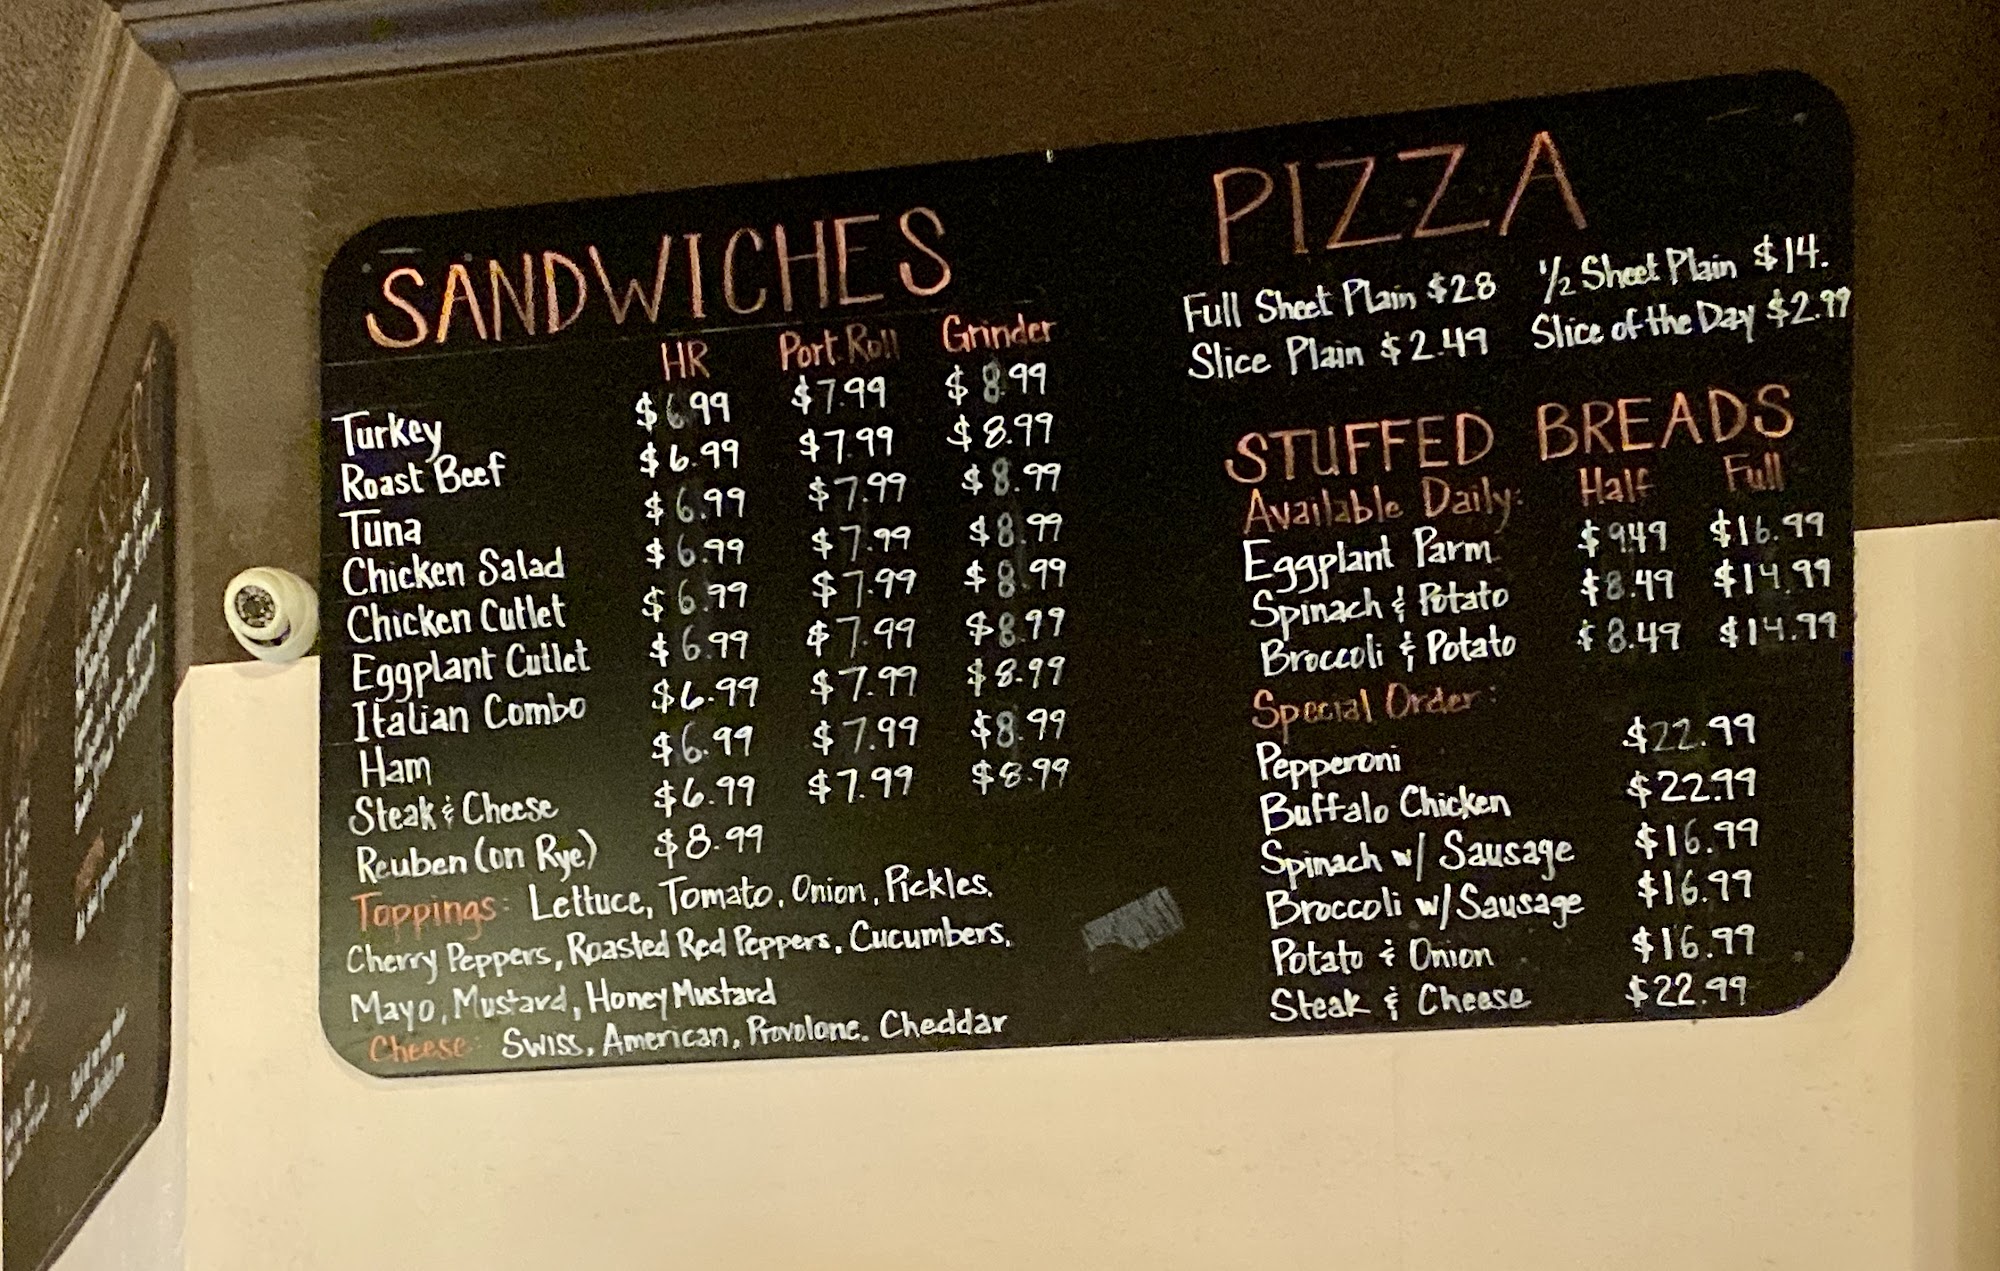 SANDWICHES
HR Port. Roll Grinder
Turkey $6.99 $7.99 $8.99
Roast Beef $6.99 $7.99 $8.99
Tuna $6.99 $7.99 $8.99
Chicken Salad $6.99 $7.99 $8.99
Chicken Cutlet $6.99 $7.99 $8.99
Eggplant Cutlet $6.99 $7.99 $8.99
Italian Combo $6.99 $7.99 $8.99
Ham $6.99 $7.99 $8.99
Steak & Cheese $6.99 $7.99 $8.99
Reuben (on Rye) $8.99
Toppings: Lettuce, Tomato, Onion, Pickles,
Cherry Peppers, Roasted Red Peppers, Cucumbers,
Mayo, Mustard, Honey Mustard
Cheese: Swiss, American, Provolone, Cheddar
PIZZA
Full Sheet Plain $28 1/2 Sheet Plain $14.
Slice Plain $2.49 Slice of the Day $2.99
STUFFED BREADS
Available Daily: Half Full
Eggplant Parm $9.49 $16.99
Spinach & Potato $8.49 $14.99
Broccoli & Potato $8.49 $14.99
Special Order:
Pepperoni $22.99
Buffalo Chicken $22.99
Spinach w/ Sausage $16.99
Broccoli w/ Sausage $16.99
Potato & Onion $16.99
Steak & Cheese $22.99